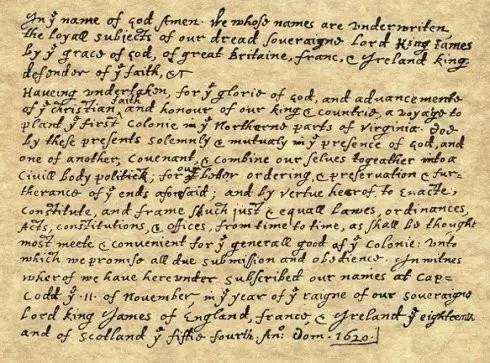 In yͤ name of god Amen· We whose names are underwriten,
the loyall subjects of our dread soveraigne Lord King James
by yͤ grace of god, of great Britaine, franc, & Ireland king,
defender of yͤ faith, &c
Haveing undertaken, for yͤ glorie of god, and advancemente
of yͤ christian faith and honour of our king & countrie, a voyage to
plant yͤ first colonie in yͤ Northerne parts of Virginia· doe
by these presents solemnly & mutualy in yͤ presence of god, and
one of another, covenant, & combine our selves togeather into a
Civill body politick; for our better ordering, & preservation & fur=
therance of yͤ ends aforesaid; and by vertue hereof to enacte,
constitute, and frame such just & equall lawes, ordinances,
Acts, constitutions, & offices, from time to time, as shall be thought
most meete & convenient for yͤ generall good of yͤ colonie: unto
which we promise all due submission and obedience. In witnes
wherof we have hereunder subscribed our names at Cap=
Codd yͤ ·11· of November, in yͤ year of yͤ raigne of our soveraigne
Lord king James of England, france, & Ireland yͤ eighteenth
and of Scotland yͤ fiftie fourth. Anͦ: Dom· 1620·